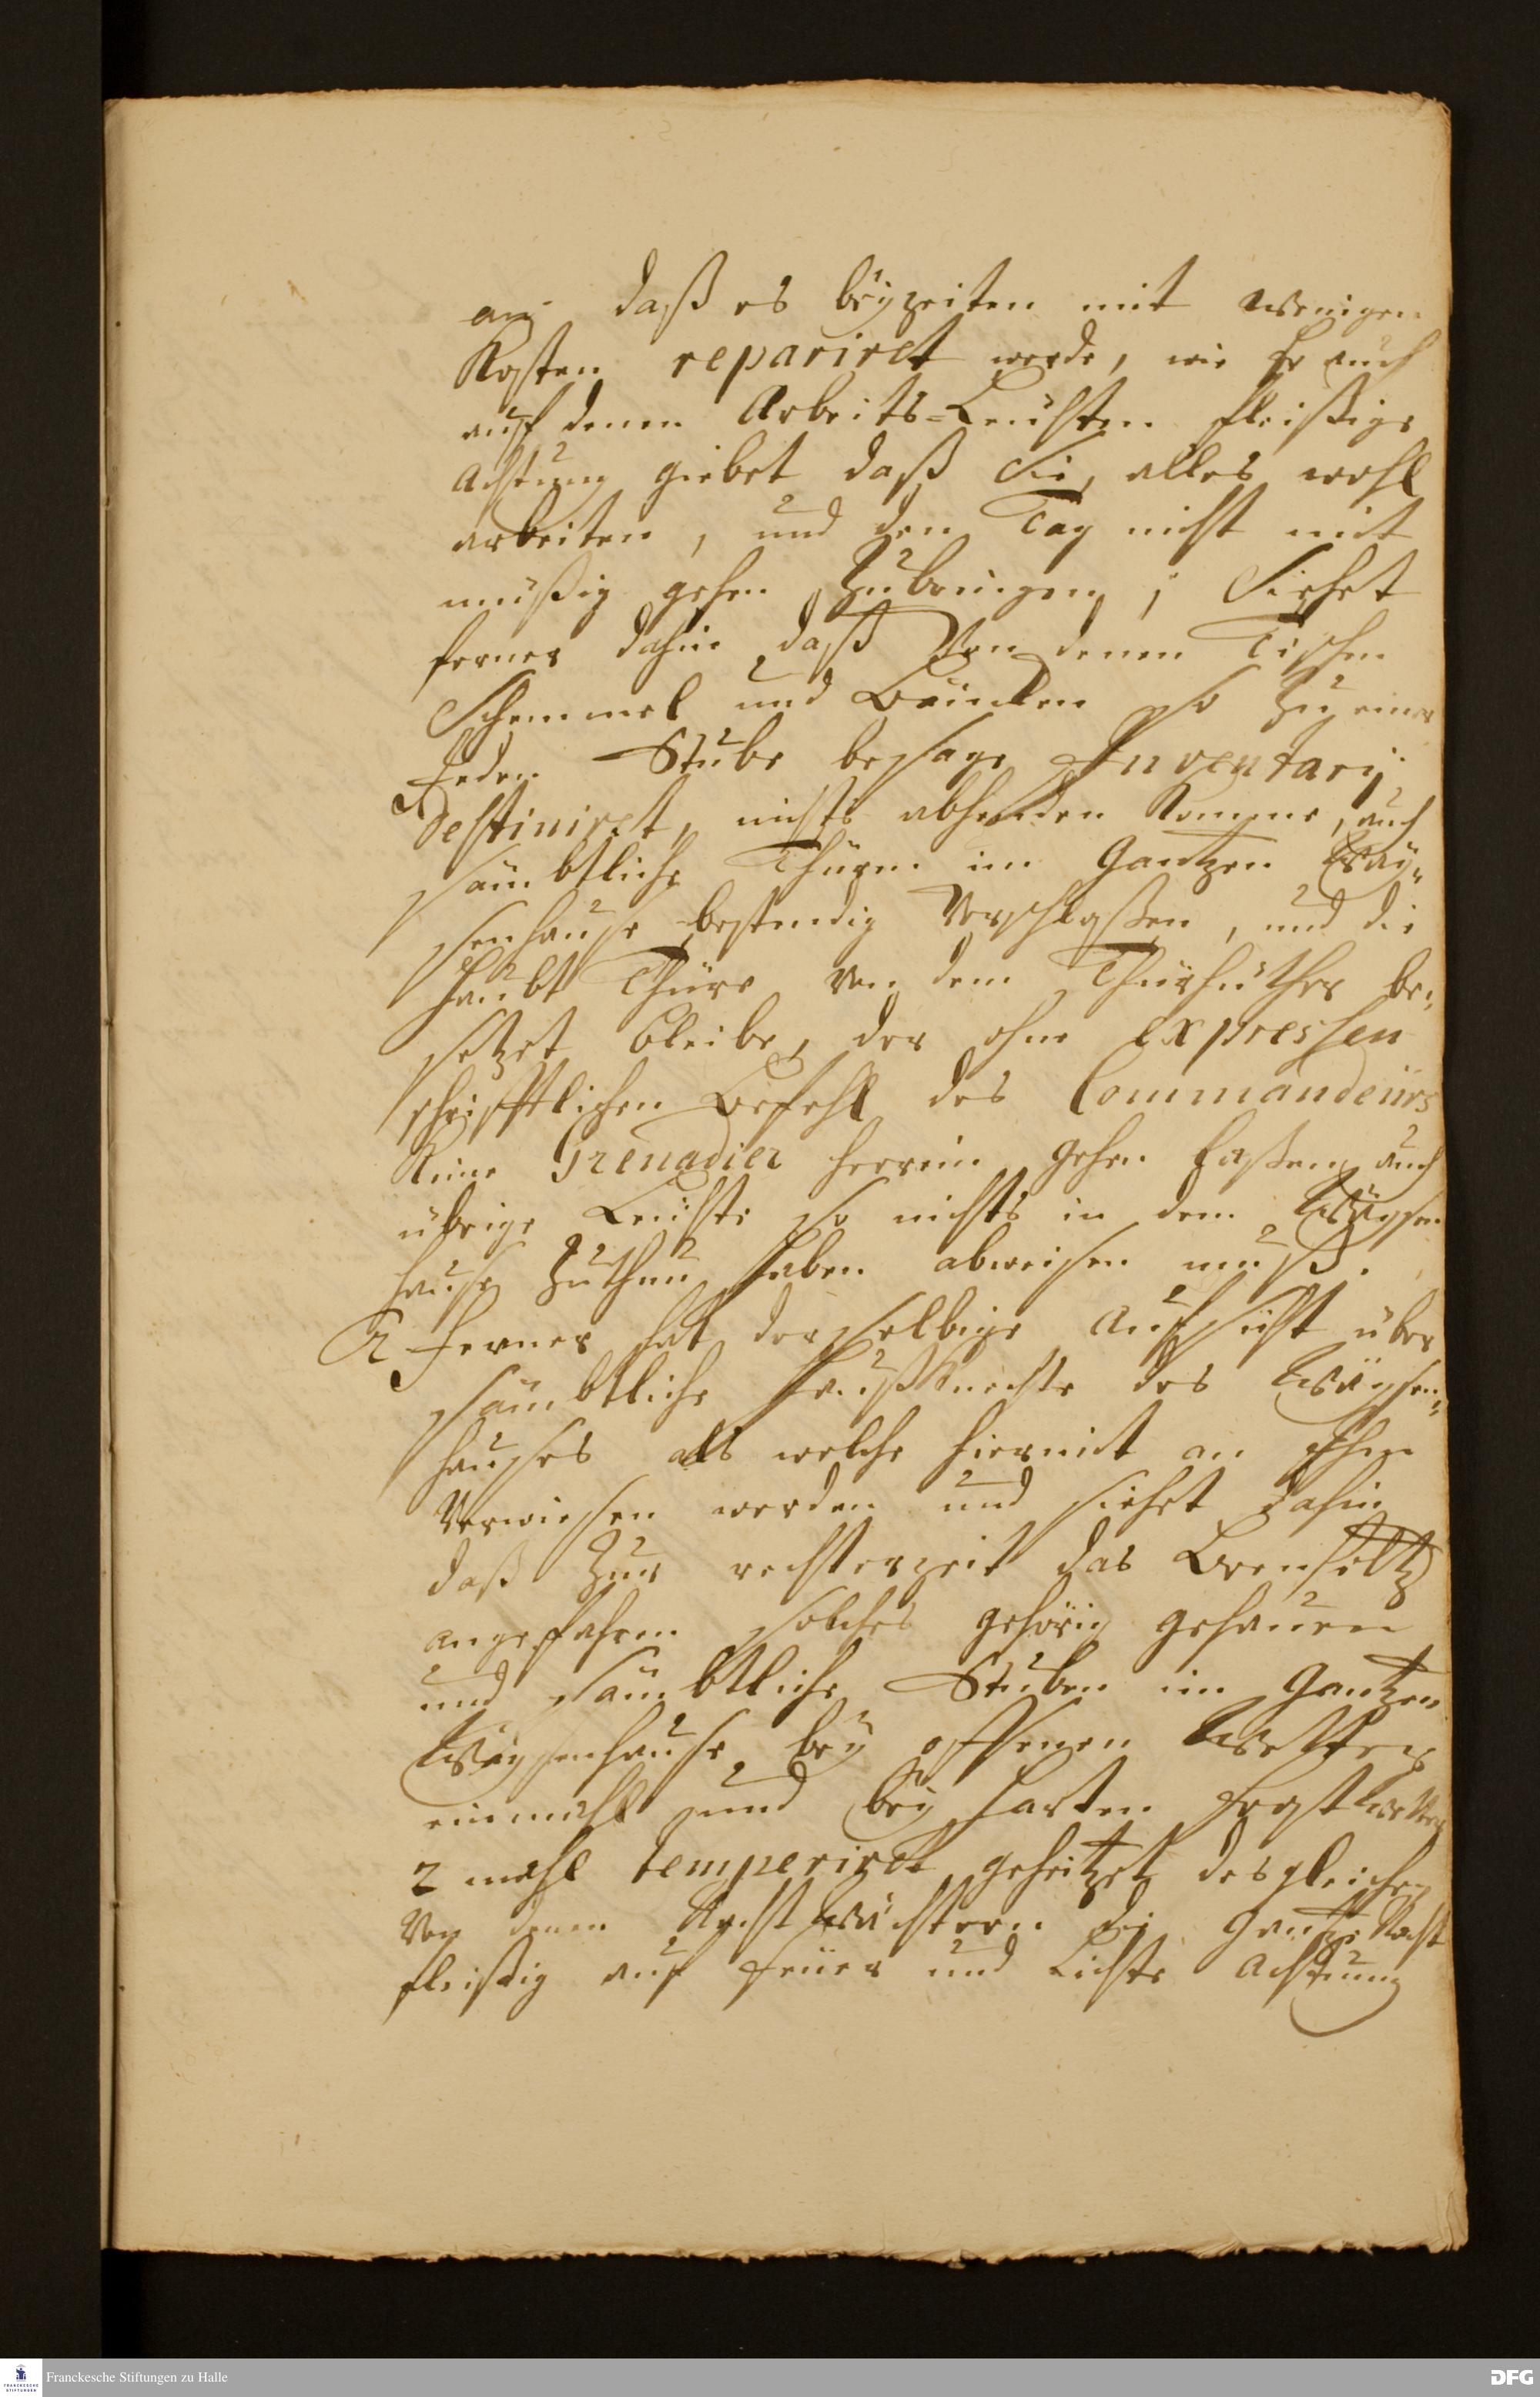 an daß es beÿzeiten mit wenigen
Kosten repariret werde, wie Er auch
auf denen Arbeits=Leuhten fleißige
Achtung giebet daß Sie, alles wohl
arbeiten, und den Tag nicht mit
müßig gehen Zubringen; Siehet
ferner dahin daß Von denen Tischen
Schemmel und Bäncken so Zu einer
Jeden Stube besage Inventarij
destiniret, nichts abhenden Komme, auch
sämbtliche Thüren im Gantzen Waÿ=
senhause bestendig Verschloßen, und die
Haubt Thüre von dem Thürhüther be=
setzet bleibe, der ohne expressen
schrifftlichen Befehl des Commandeurs
Keine Grenadier herrein gehen laßen, auch
übrige Leuhte so nichts in dem Waÿsen
hause Zuthun haben abweisen muß.
2 Ferner hat derselbige Aufsicht über
sämbtliche HaußKnechte des Waÿsen=
hauses als welche hiermit an Ihm
Verwiesen werden und siehet dahin
daß Zur rechterzeit das Brenholtz
angefahren solches gehörig gehauen
und sämbtliche Stuben im Gantzen
Waÿsenhause beÿ offenen Wetter
einmahl und beÿ harten Frost Wetter
2 mahl temperiret geheitzet desgleichen
Von denen Nacht Wächtern die Gantze Nacht
fleißig auf Feüer und Lichte Achtung
Franckesche Stiftungen zu Halle
DFG